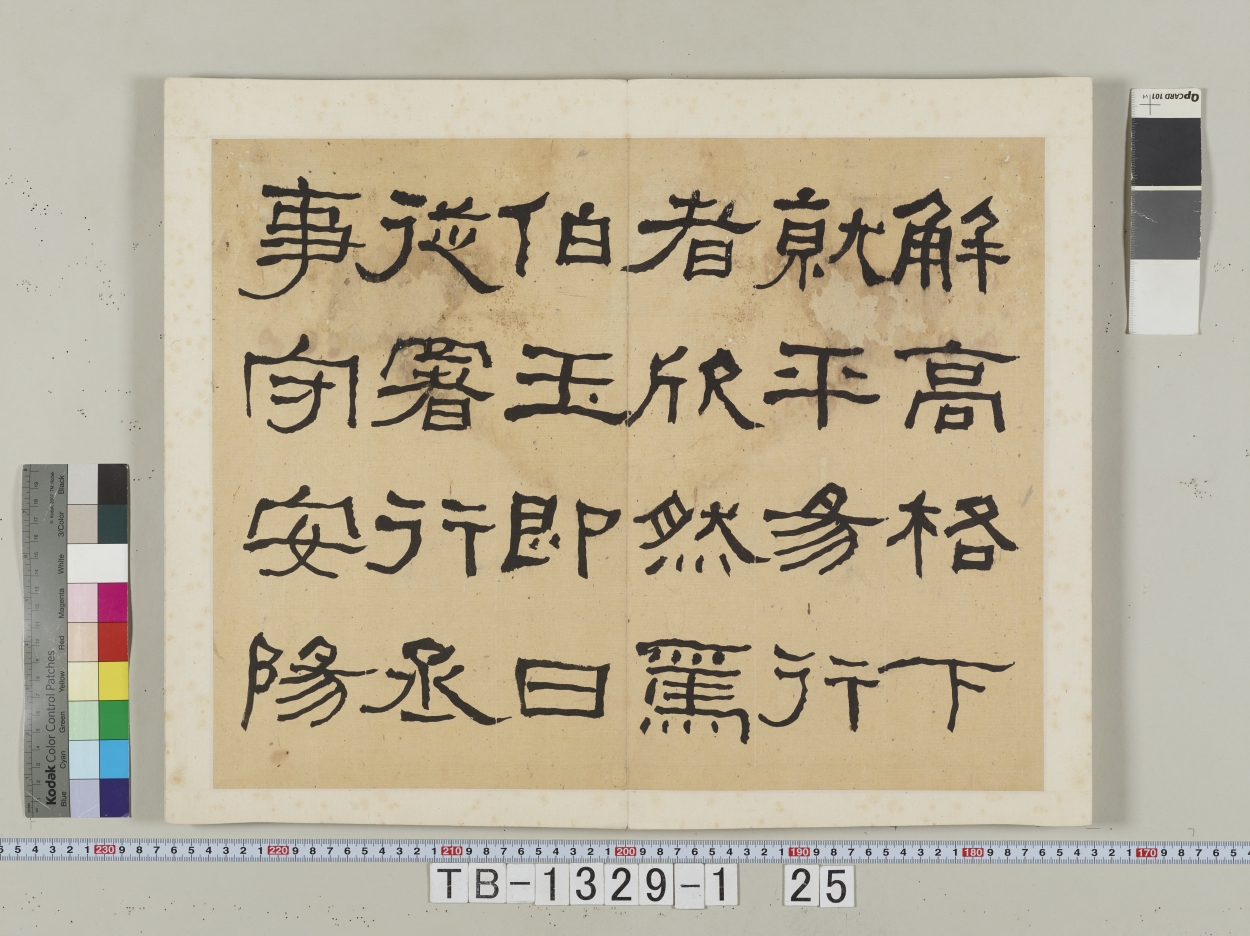 解高格下
就平易行
者欣然焉
伯玉即日
徙署行丞
事守安陽
QPCARD 101
Kodak Color Control Patches
Blue Cyan Green Yellow Red Magenta White 3/Color Black
TB-1329-1 25